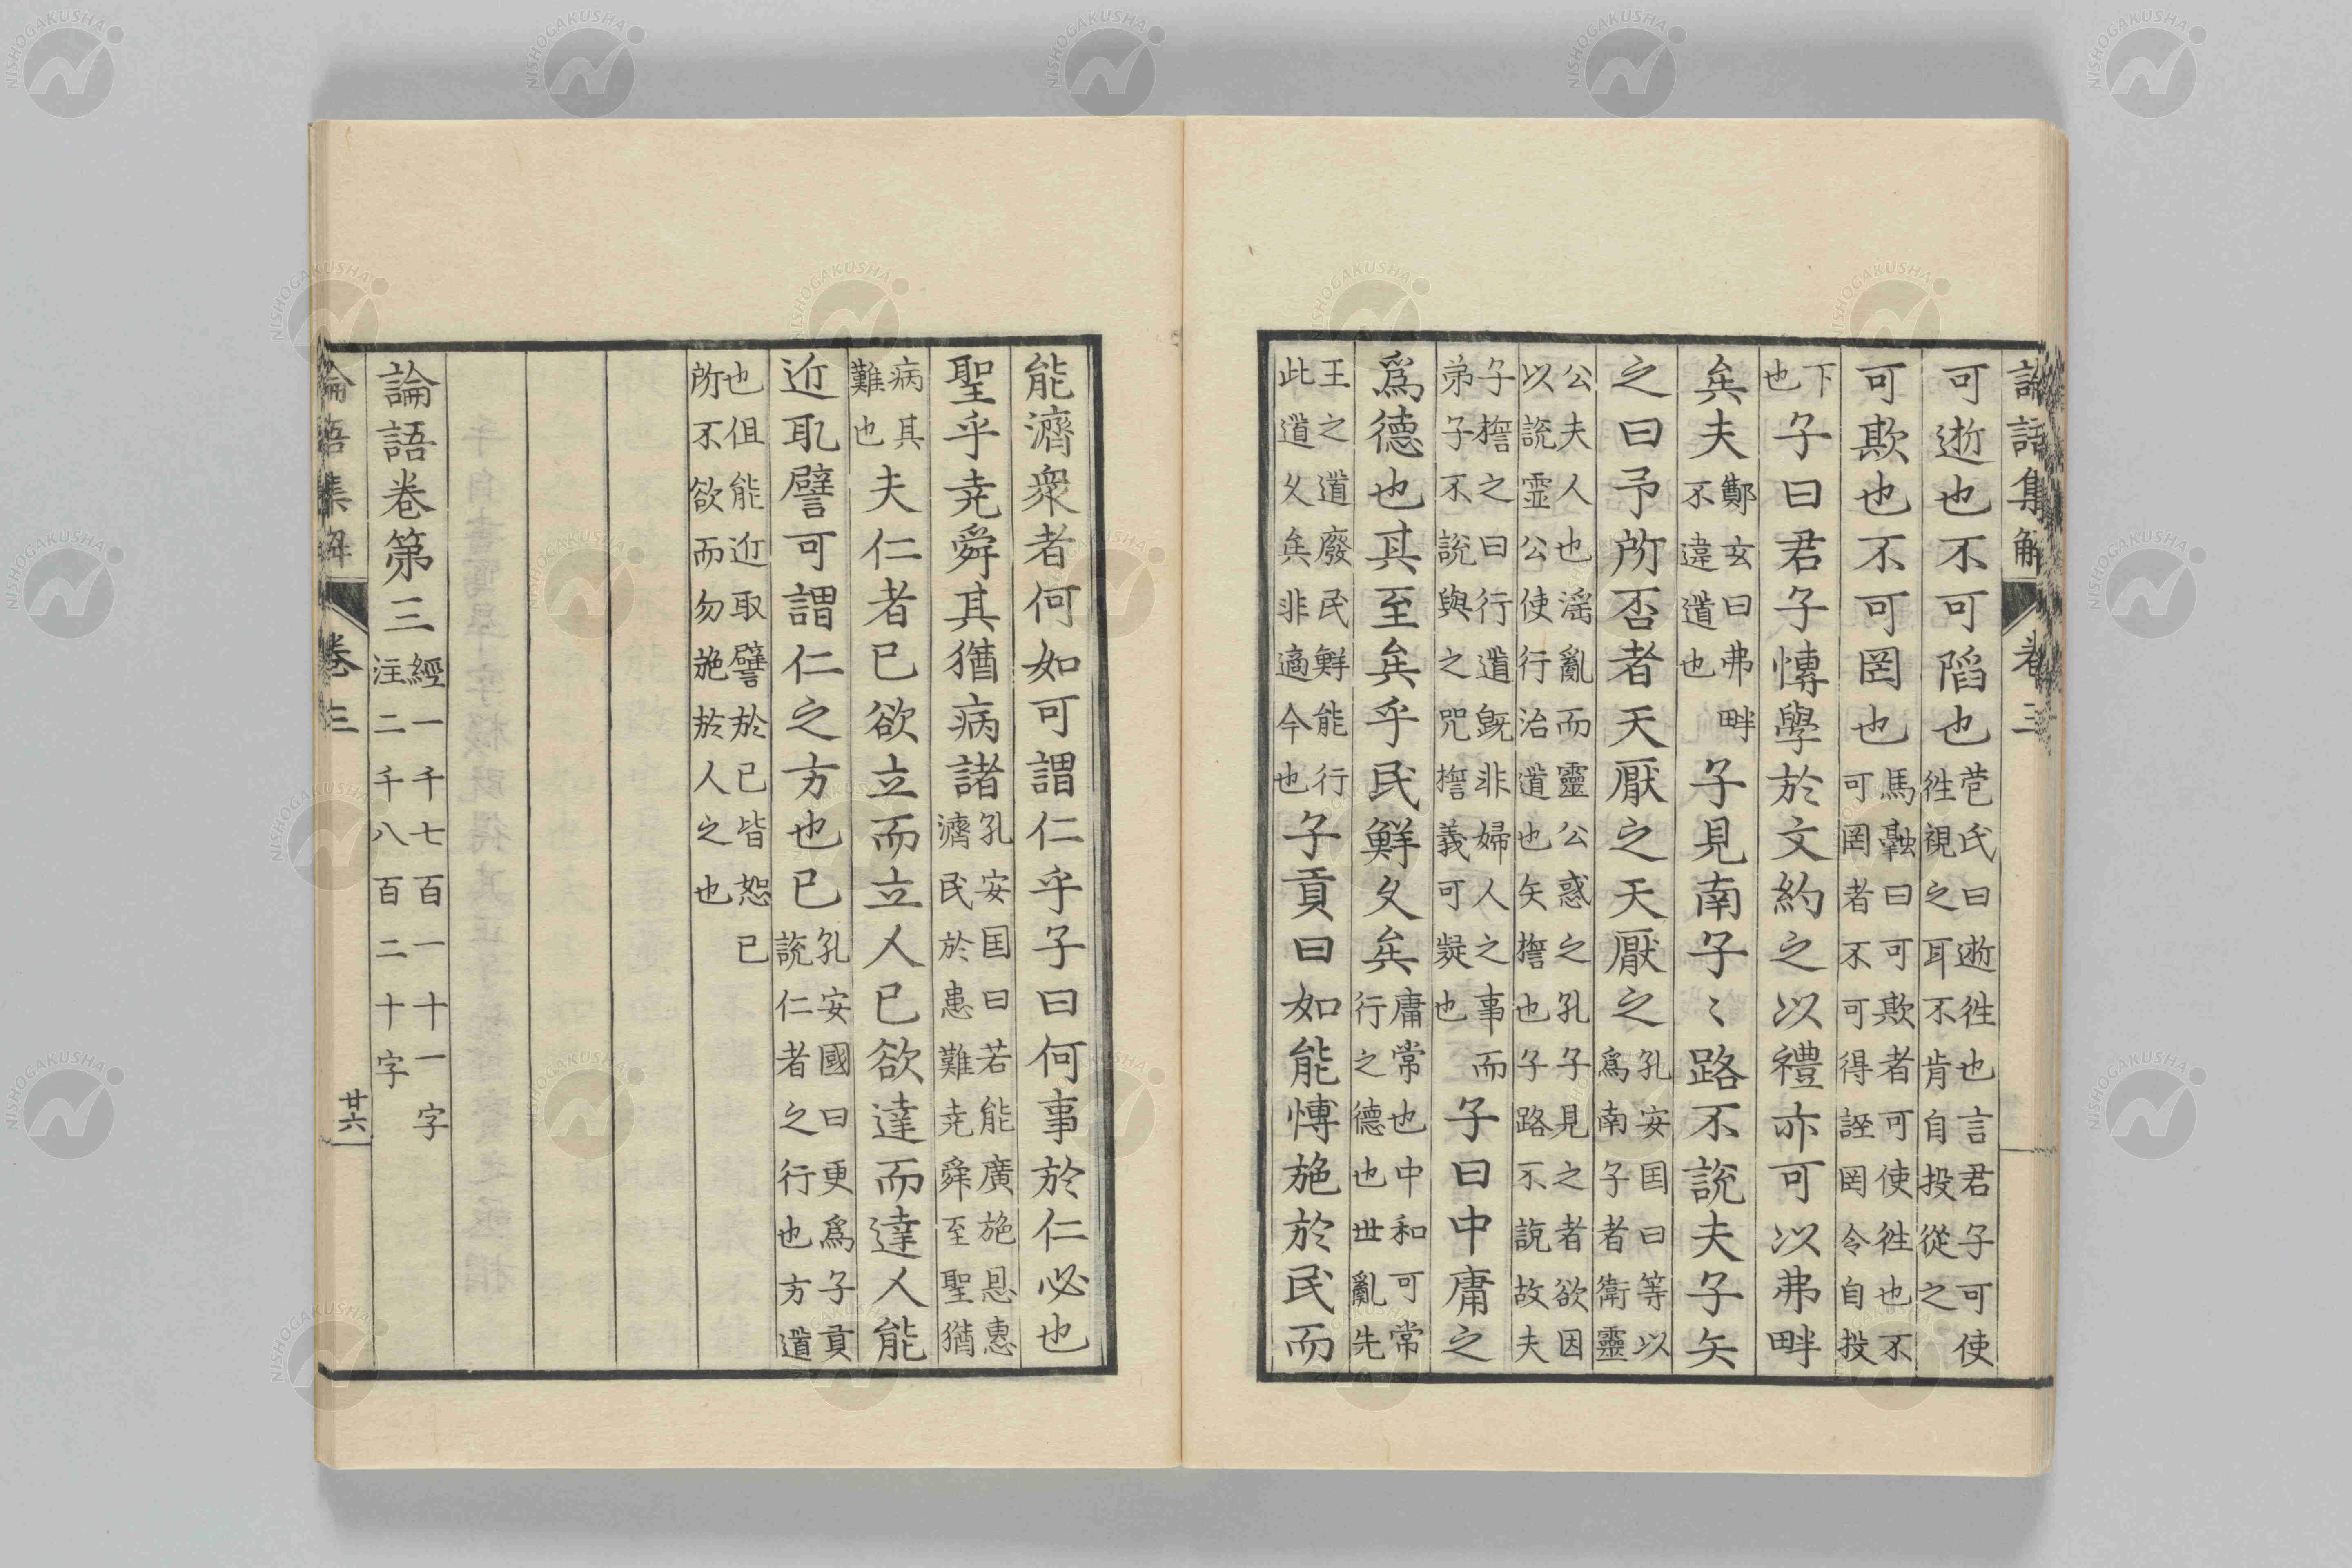 論語集解 卷三
可逝也不可陷也苞氏曰逝徃也言君子可使徃視之耳不肯自投從之
可欺也不可罔也馬融曰可欺者可使徃也不可罔者不可得誣罔令自投
下也子曰君子愽學於文約之以禮亦可以弗畔
矣夫鄭玄曰弗畔不違道也子見南子〻路不說夫子矢
之曰予所否者天厭之天厭之孔安囯曰等以爲南子者衛靈
公夫人也滛亂而靈公惑之孔子見之者欲因以說靈公使行治道也矢擔也子路不說故夫
子擔之曰行道既非婦人之事而弟子不說與之咒擔義可疑也子曰中庸之
爲德也其至矣乎民鮮久矣庸常也中和可常行之德也世亂先
王之道廢民鮮能行此道久矣非適今也子貢曰如能愽施於民而
能濟衆者何如可謂仁乎子曰何事於仁必也
聖乎尭舜其猶病諸孔安囯曰若能廣施恩惠濟民於患難尭舜至聖猶
病其難也夫仁者己欲立而立人己欲達而達人能
近取譬可謂仁之方也已孔安國曰更爲子貢說仁者之行也方道
也伹能近取譬於己皆恕己所不欲而勿施於人之也
論語卷第三經一千七百一十一字注二千八百二十字
論語集解 卷三 廿六
NISHOGAKUSHA